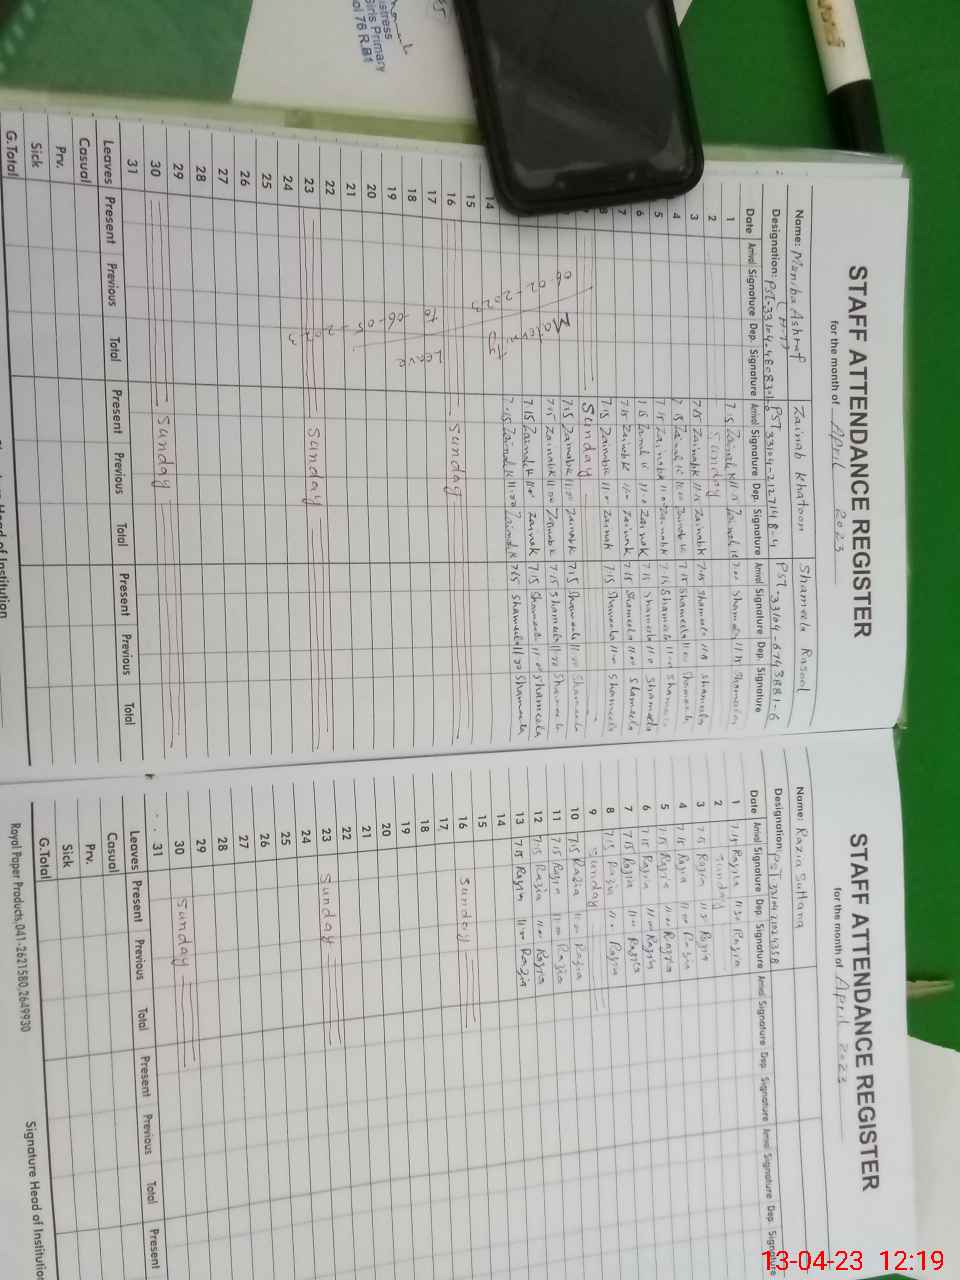 istress
Girls Primary
ol 76 R.B1
STAFF ATTENDANCE REGISTER
for the month of April 2023
Name: Maniba Ashraf Zainab Khatoon Shameela Rasool
Designation: PST 33104-2127148-4 PST-33104-6793881-6
Date Arrival Signature Dep. Signature Arrival Signature Dep. Signature Arrival Signature Dep. Signature
1 7:15 Zainab K Zainab K Shameela Shameela
2 Sunday
3 7:15 Zainab K Zainab K 7:15 Shameela Shameela
4 7:15 Zainab K 11:00 Zainab K 7:15 Shameela 11:00 Shameela
5 7:15 Zainab K 11:00 Zainab K 7:15 Shameela 11:00 Shameela
6 7:15 Zainab K 11:00 Zainab K 7:15 Shameela 11:00 Shameela
7 7:15 Zainab K 11:00 Zainab K 7:15 Shameela 11:00 Shameela
8 7:15 Zainab K 11:00 Zainab K 7:15 Shameela 11:00 Shameela
Sunday
7:15 Zainab K 11:00 Zainab K 7:15 Shameela 11:00 Shameela
7:15 Zainab K 11:00 Zainab K 7:15 Shameela 11:00 Shameela
7:15 Zainab K 11:00 Zainab K 7:15 Shameela 11:00 Shameela
7:15 Zainab K 11:00 Zainab K 7:15 Shameela 11:00 Shameela
Maternity Leave
06-02-2023
to
06-05-2023
14
15
16 Sunday
17
18
19
20
21
22
23 Sunday
24
25
26
27
28
29
30 Sunday
31
Leaves Present Previous Total Present Previous Total Present Previous Total
Casual
Prv.
Sick
G.Total
STAFF ATTENDANCE REGISTER
for the month of April 2023
Name: Razia Sultana
Designation: PST
Date Arrival Signature Dep. Signature Arrival Signature Dep. Signature Arrival Signature Dep. Signature
1 7:15 Razia Razia
2 Sunday
3 7:15 Razia Razia
4 7:15 Razia 11:00 Razia
5 7:15 Razia 11:00 Razia
6 7:15 Razia 11:00 Razia
7 7:15 Razia 11:00 Razia
8 7:15 Razia 11:00 Razia
9 Sunday
10 7:15 Razia 11:00 Razia
11 7:15 Razia 11:00 Razia
12 7:15 Razia 11:00 Razia
13 7:15 Razia 11:00 Razia
14
15
16 Sunday
17
18
19
20
21
22
23 Sunday
24
25
26
27
28
29
30 Sunday
31
Leaves Present Previous Total Present Previous Total Present
Casual
Prv.
Sick
G.Total
Royal Paper Products,041-2621580,2649930
Signature Head of Institution
13-04-23 12:19